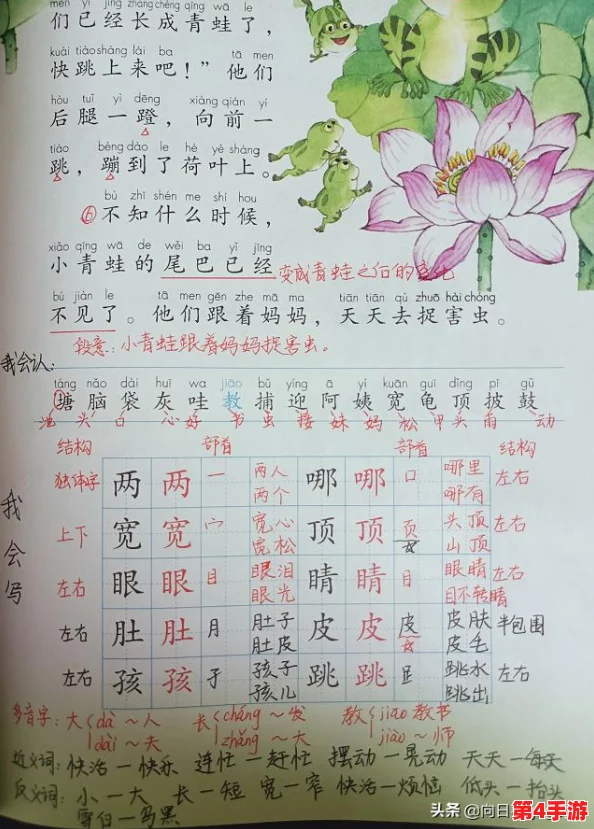 men yǐ jīng zhǎng chéng qīng wā le
们已经长成青蛙了，
kuài tiào shàng lái ba tā men
快跳上来吧！”他们
hòu tuǐ yì dēng xiàng qián yí
后腿一蹬，向前一
tiào bèng dào le hé yè shàng
跳，蹦到了荷叶上。
bù zhī shén me shí hou
⑥不知什么时候，
xiǎo qīng wā de wěi ba yǐ jīng
小青蛙的尾巴已经 变成青蛙之后的变化
bú jiàn le tā men gēn zhe mā ma tiān tiān qù zhuō hài chóng
不见了。他们跟着妈妈，天天去捉害虫。
段意：小青蛙跟着妈妈捉害虫。
我会认：
táng nǎo dài huī wa jiāo bǔ yíng ā yí kuān guī dǐng pī gǔ
①塘脑袋灰哇教捕迎阿姨宽龟顶披鼓
池 头 白 心 好 书 虫 接 妹 妈 松 甲 头 肩 动
结构 部首 部首 结构
我会写
独体字 两 两 一 两人 两个 哪 哪 口 哪里 哪有 左右
上下 宽 宽 宀 宽心 宽松 顶 顶 页 头顶 山顶 左右
左右 眼 眼 目 眼泪 眼光 睛 睛 目 眼睛 目不转睛 左右
左右 肚 肚 月 肚子 肚皮 皮 皮 皮 皮肤 皮毛 半包围
左右 孩 孩 子 孩子 孩儿 跳 跳 足 跳水 跳出 左右
多音字：大 dà ～人 dài ～夫 长 cháng ～发 zhǎng ～大 教 jiāo 教书 jiào ～师
近义词：快活—快乐 连忙—赶忙 摆动—晃动 天天—每天
反义词：小—大 长—短 宽—窄 快活—烦恼 低头—抬头
雪白—乌黑
头条 @向日
第4手游